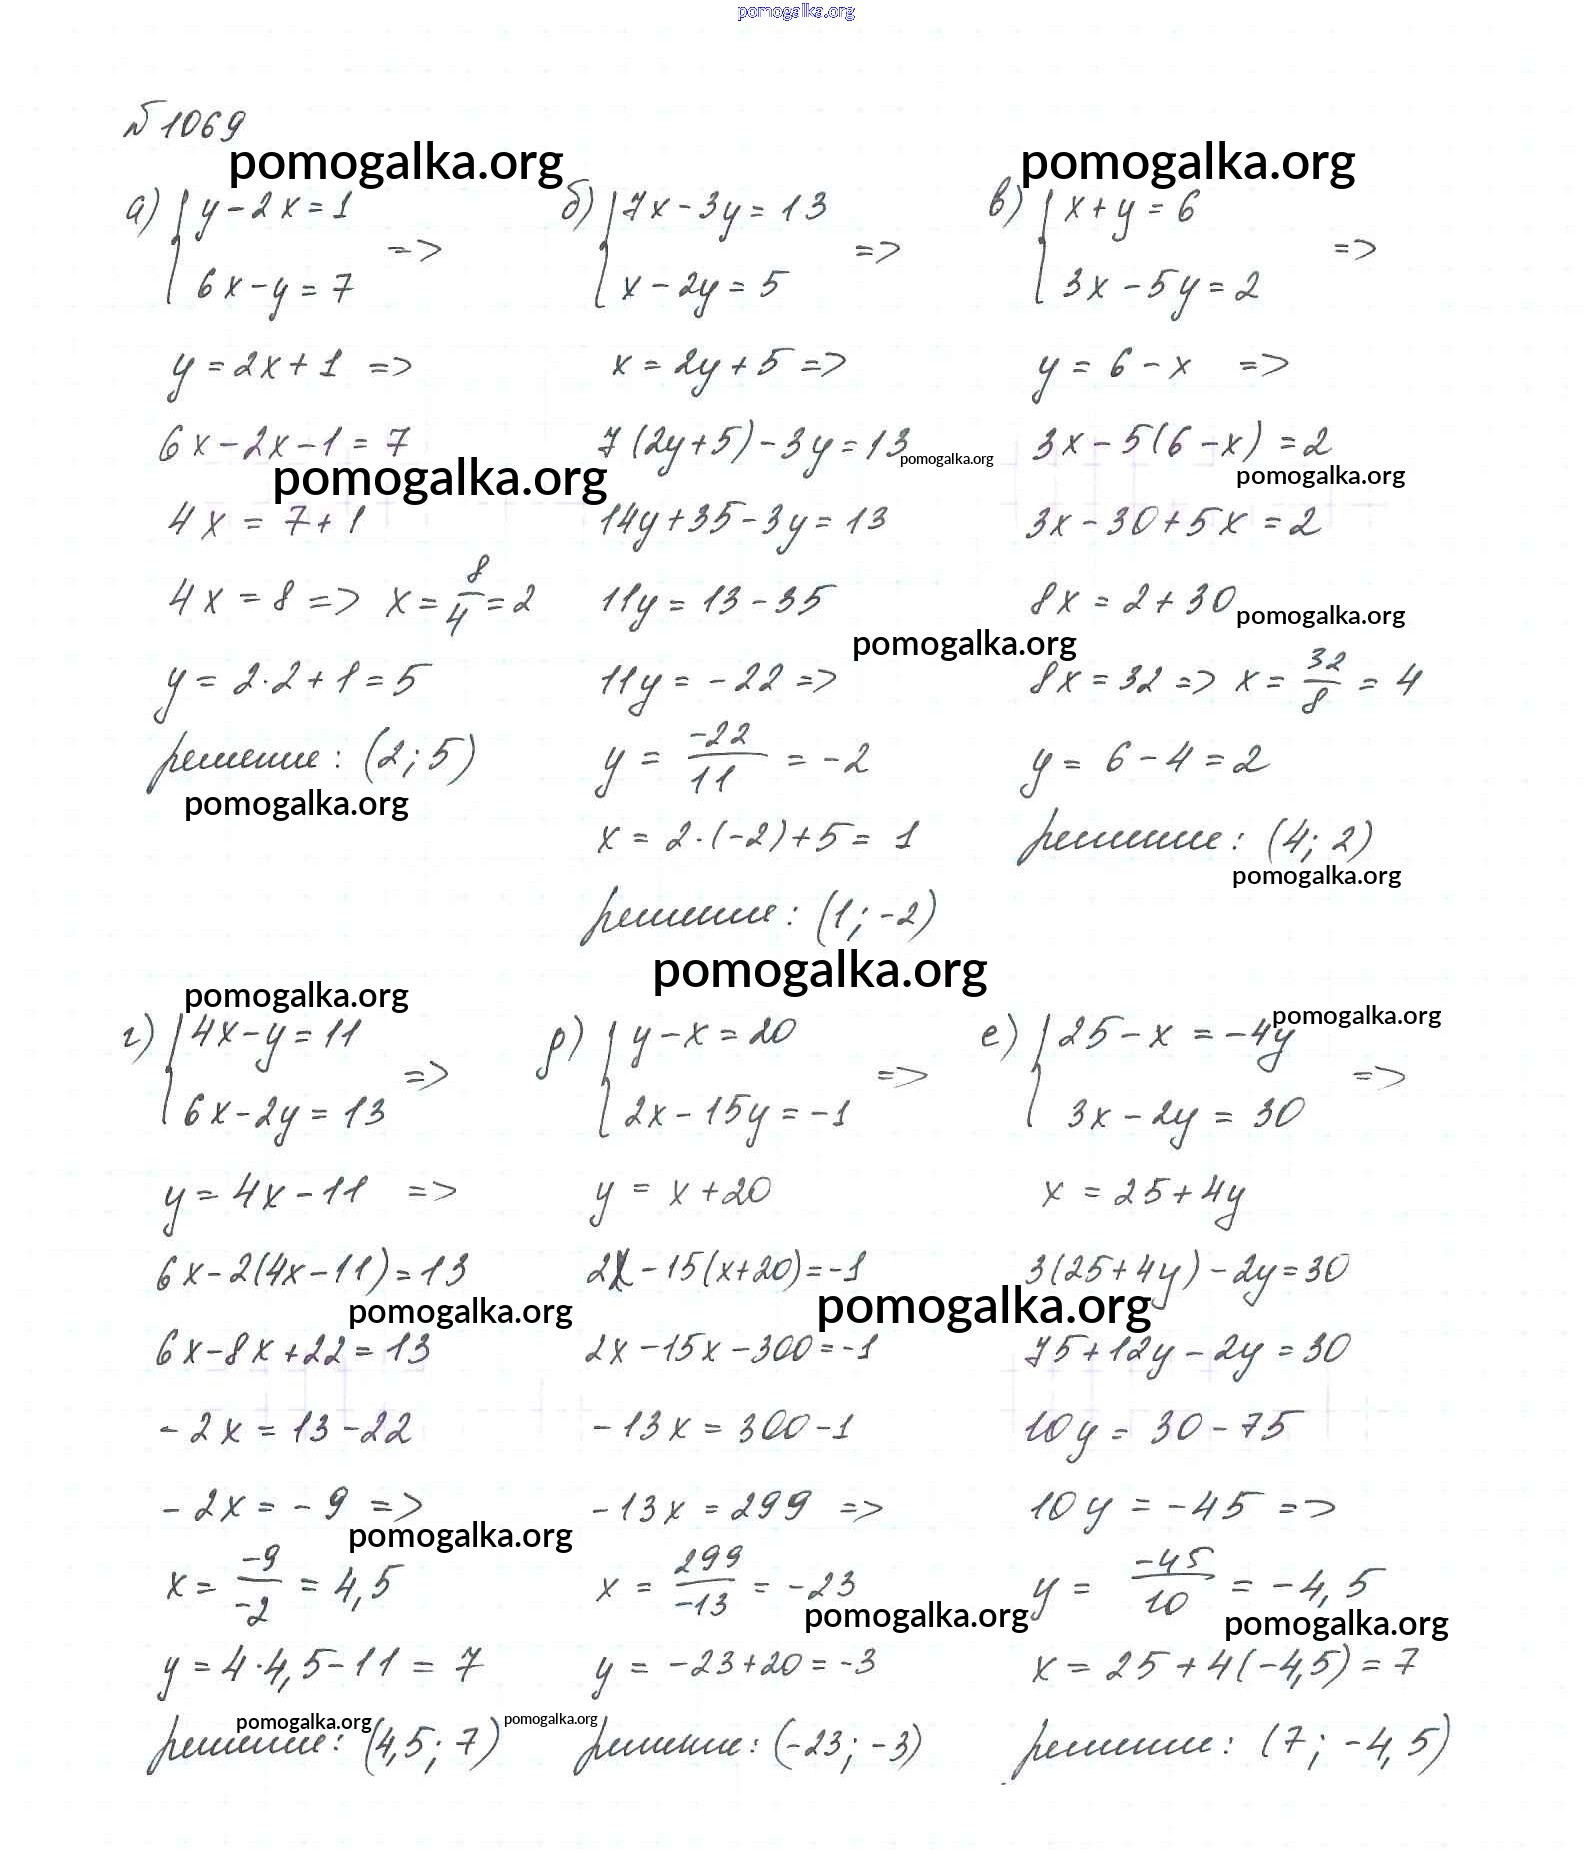 pomogalka.org
№ 1069
pomogalka.org pomogalka.org
а) { y - 2x = 1
6x - y = 7 =>
y = 2x + 1 =>
6x - 2x - 1 = 7
pomogalka.org
4x = 7 + 1
4x = 8 => x = 8/4 = 2
y = 2·2 + 1 = 5
решение: (2; 5)
pomogalka.org
б) { 7x - 3y = 13
x - 2y = 5 =>
x = 2y + 5 =>
7(2y+5) - 3y = 13
pomogalka.org
14y + 35 - 3y = 13
11y = 13 - 35
pomogalka.org
11y = -22 =>
y = -22/11 = -2
x = 2·(-2) + 5 = 1
решение: (1; -2)
pomogalka.org
в) { x + y = 6
3x - 5y = 2 =>
y = 6 - x =>
3x - 5(6 - x) = 2
pomogalka.org
3x - 30 + 5x = 2
8x = 2 + 30
pomogalka.org
8x = 32 => x = 32/8 = 4
y = 6 - 4 = 2
решение: (4; 2)
pomogalka.org
pomogalka.org
г) { 4x - y = 11
6x - 2y = 13 =>
y = 4x - 11 =>
6x - 2(4x - 11) = 13
pomogalka.org
6x - 8x + 22 = 13
-2x = 13 - 22
-2x = -9 =>
pomogalka.org
x = -9/-2 = 4,5
y = 4·4,5 - 11 = 7
pomogalka.org
решение: (4,5; 7)
pomogalka.org
д) { y - x = 20
2x - 15y = -1 =>
y = x + 20
2x - 15(x+20) = -1
pomogalka.org
2x - 15x - 300 = -1
-13x = 300 - 1
-13x = 299 =>
x = 299/-13 = -23
pomogalka.org
y = -23 + 20 = -3
решение: (-23; -3)
pomogalka.org
е) { 25 - x = -4y
3x - 2y = 30 =>
x = 25 + 4y
3(25 + 4y) - 2y = 30
75 + 12y - 2y = 30
10y = 30 - 75
10y = -45 =>
y = -45/10 = -4,5
pomogalka.org
x = 25 + 4(-4,5) = 7
решение: (7; -4,5)